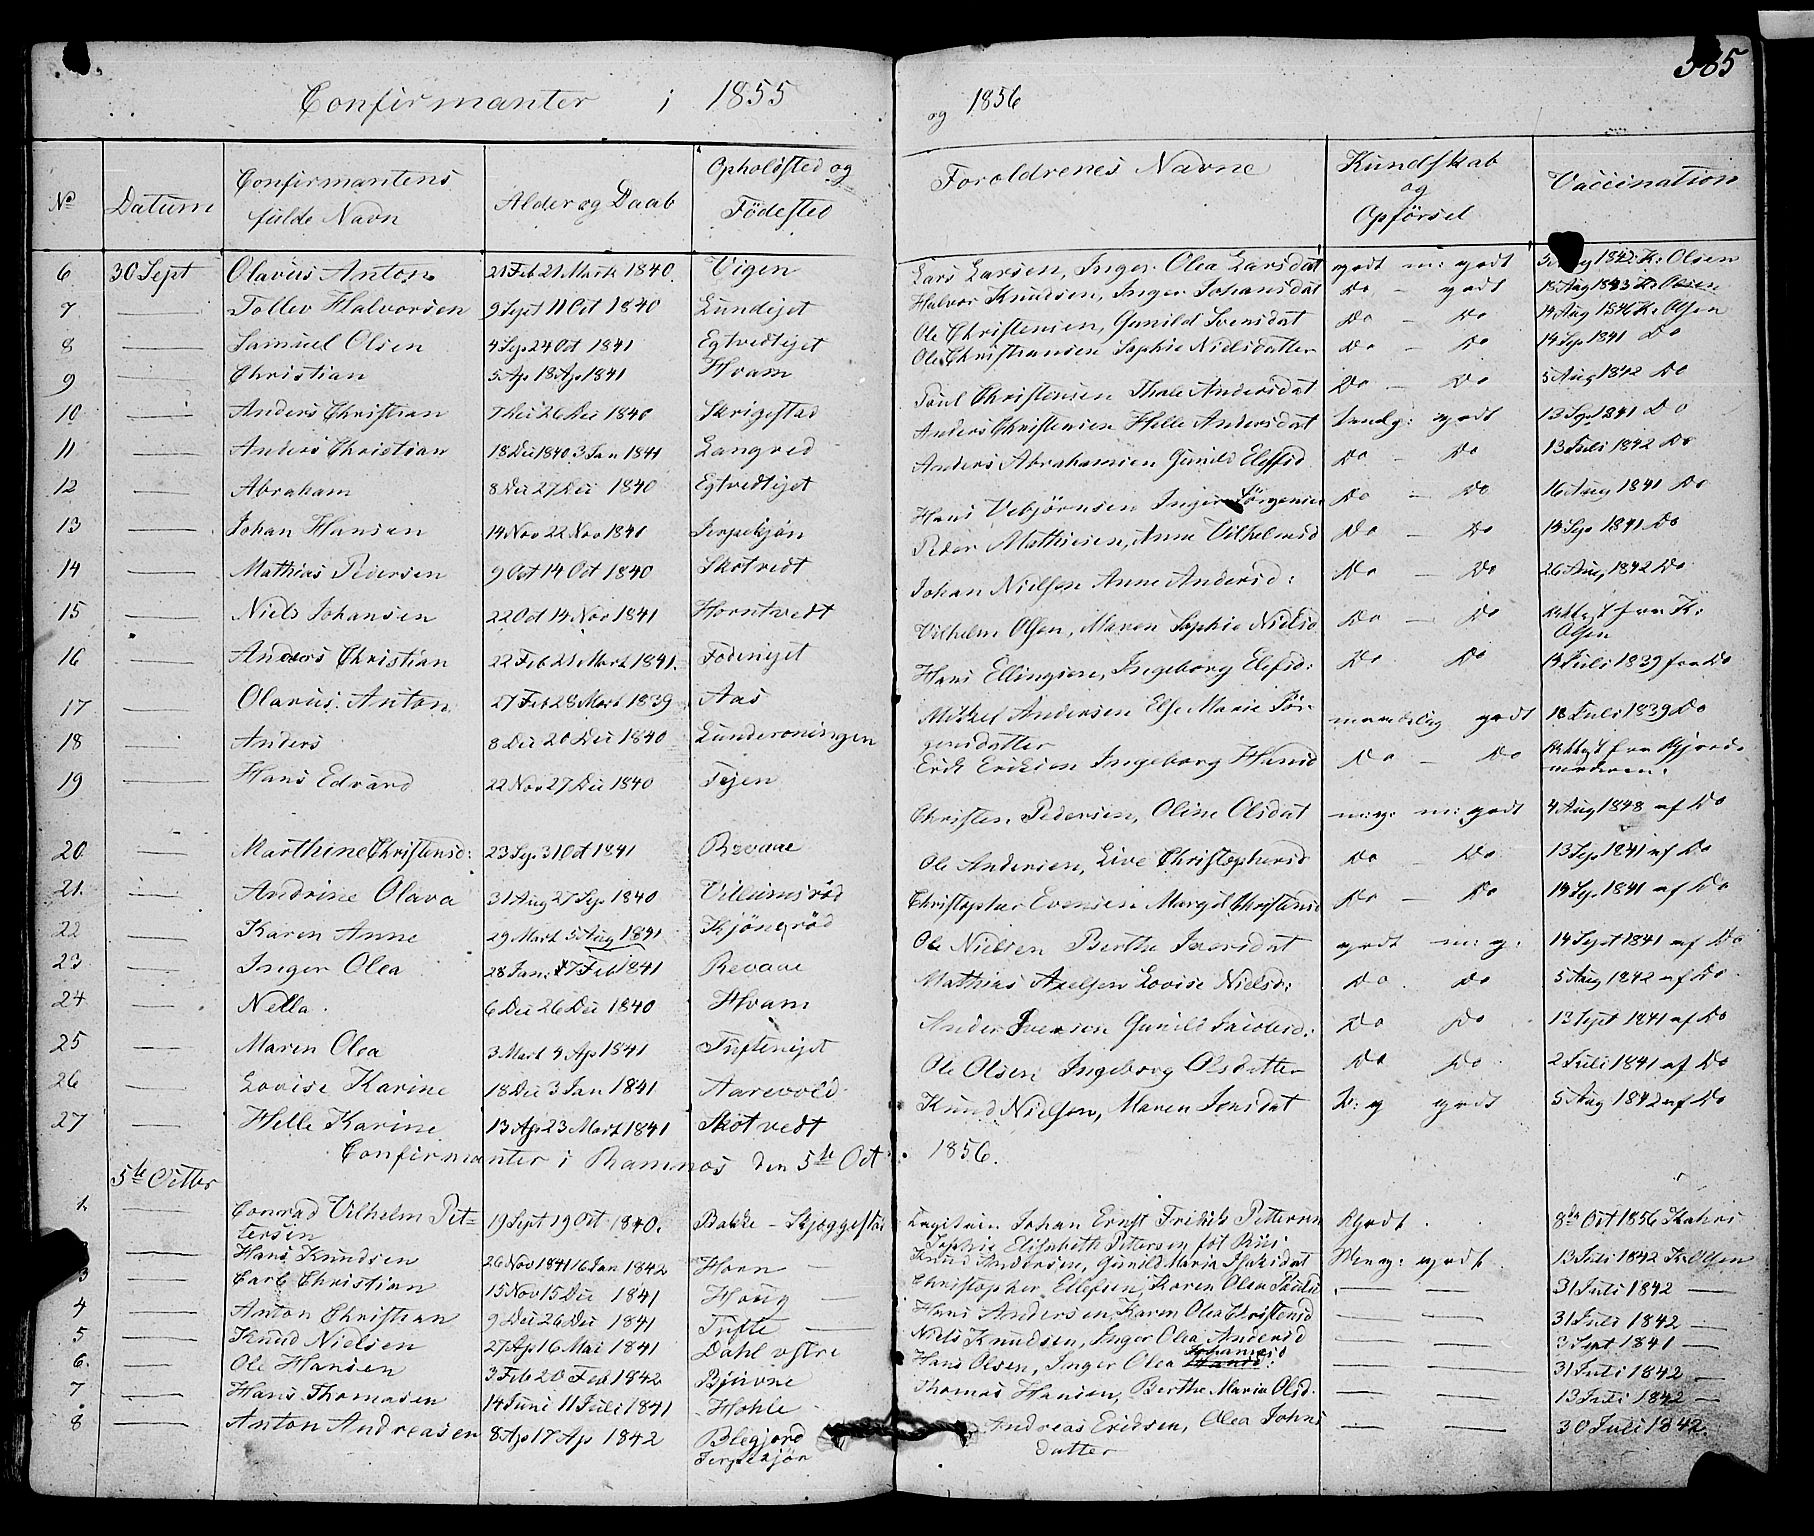 585
Confirmanter i 1855 og 1856
No Datum Confirmantens fulde Navn Alder og Daab Opholdsted og Födested Foroldrenes Navne Kundskab og Opförsel Vaccination
6 30 Sept Olavus Anton 21 Feb 21 Mart 1840 Vigen Lars Larsen, Inger Olea Larsdat godt m: godt 1842 K: Olsen
7 — Tollev Halvorsen 9 Sept 11 Oct 1840 Lundejet Halvor Knudsen, Inger Johansdat Do — godt 18 Aug 1843 K: Olsen
8 — Samuel Olsen 4 Sep 24 Oct 1841 Egtvedtejet Ole Christensen, Gunild Svensdat Do — Do 14 Aug 1846 K: Olsen
9 — Christian 5 Ap 18 Ap 1841 Hvam Ole Christiansen Sophie Nielsdatter Do — Do 14 Sep 1841 Do
10 — Anders Christian 7 Dec 26 Dec 1840 Skrigestad Poul Christensen Thale Andersdat Do — Do 5 Aug 1842 Do
11 — Anders Christian 18 Dec 1840 3 Jan 1841 Langved Anders Christensen Helle Andersdat Tandg: godt 13 Sep 1841 Do
12 — Abraham 8 Dec 27 Dec 1840 Egtvedtejet Anders Abrahamsen Gunild Elefsd Do — Do 13 Juli 1842 Do
13 — Johan Hansen 14 Nov 22 Nov 1841 Terpekjön Hans Vebjörnsen Inger Jörgensen Do — Do 16 Aug 1841 Do
14 — Mathias Pedersen 9 Oct 14 Oct 1840 Skotvedt Peder Mathiesen, Anne Vilhelmsd Do — Do 14 Sep 1841 Do
15 — Niels Johansen 22 Oct 14 Nov 1841 Horntvedt Johan Nielsen Anne Andersd: Do — Do 26 Aug 1842 Do
16 — Anders Christian 22 Feb 21 Mart 1841. Fodenejet Vilhelm Olsen, Maren Sophie Nielsd Do — Do fra K: Olsen
17 — Olavus Anton 27 Feb 28 Mart 1839 Aas Hans Ellingsen, Ingeborg Elefsd: Do Do 14 Juli 1839 fra Do
18 — Anders 8 Dec 20 Dec 1840 Lunderoningen Mikkel Andersen Else Marie Jör-
gensdatter maadelig godt 18 Juli 1839 Do
19 — Hans Edvard 22 Nov 27 Dec 1840 Tejen Erik Eriksen Ingeborg Hansd Do — Do fra Gjorde-
moderen:
20 — Marthine Christensd: 23 Sep 31 Oct 1841 Revaae Christen Pedersen, Oline Olsdat m:g: m: godt 4 Aug 1848 af Do
21. — Andrine Olava 31 Aug 27 Sep 1840 Villumsröd Ole Andersen, Live Christophersd Do — Do 13 Sep 1841 af Do
22 — Karen Anne 29 Mart 5 Aug 1841 Kjöneröd Christopher Evensen Margit Christensd Do — Do 14 Sep 1841 af Do
23 — Inger Olea 28 Jan: 7 Feb 1841 Revaae Ole Nielsen Berthe Iversdat godt m: g: 14 Sept 1841 af Do
24 — Nella. 6 Dec 26 Dec 1840 Hvam Mathias Axelsen Lovise Nielsd: Do Do 5 Aug 1842 af Do
25 — Maren Olea 3 Mart 4 Ap 1841 Tuftenejet Anders Iversen Gunild Jacobsd: Do Do 13 Sept 1841 af Do
26 — Lovise Karine 18 Dec 3 Jan 1841 Aarevold Ole Olsen Ingeborg Olsdatter Do Do 2 Juli 1841 af Do
27 — Helle Karine 13 Ap 23 Mart 1841 Skotvedt Knud Nielsen, Maren Jensdat godt 5 Aug 1842 af Do
Confirmanter i Ramnæs den 5te Oct. 1856.
5te Octbr
1 — Conrad Vilhelm Pet-
tersen 19 Sept 19 Oct 1840. Bakke - Skjæggestad Capitain Johan Ernst Fridrik Pettersen
Sophie Elisabeth Petersen föt Godt. 8de Oct 1856
Hans Knudsen 26 Nov 1841 16 Jan 1842 Horn — Knud Andersen, Gunild Maria Isaksdat Meg: godt. 13 Juli 1842 K: Olsen
3 — Carl Christian 15 Nov 15 Dec 1841 Houg — Christopher Ellefsen, Karen Olea Paulsd — — 31 Juli 1842 —
4 — Anton Christian 9 Dec 26 Dec 1841 Tufte — Hans Andersen Karen Olea Christensd — — 31 Juli 1842 —
5 — Knud Nielsen 27 Ap 16 Mai 1841 Dahl östre Niels Knudsen, Inger Olea Andersd — — 3 Sept 1841 —
6. — Ole Hansen 3 Feb 20 Feb 1842 Bjuvne Hans Olsen, Inger Olea Hansd: Johannesd — — 31 Juli 1842 —
7 — Hans Thomasen 14 Juni 11 Juli 1841 Hohle Thomas Hansen, Berthe Maria Olsd. — — 13 Juli 1842 —
8 — Anton Andreasen 8 Ap 17 Ap 1842 Blegjord
Terpekjön Andreas Eriksen, Olea Johns
datter — — 30 Juli 1842.